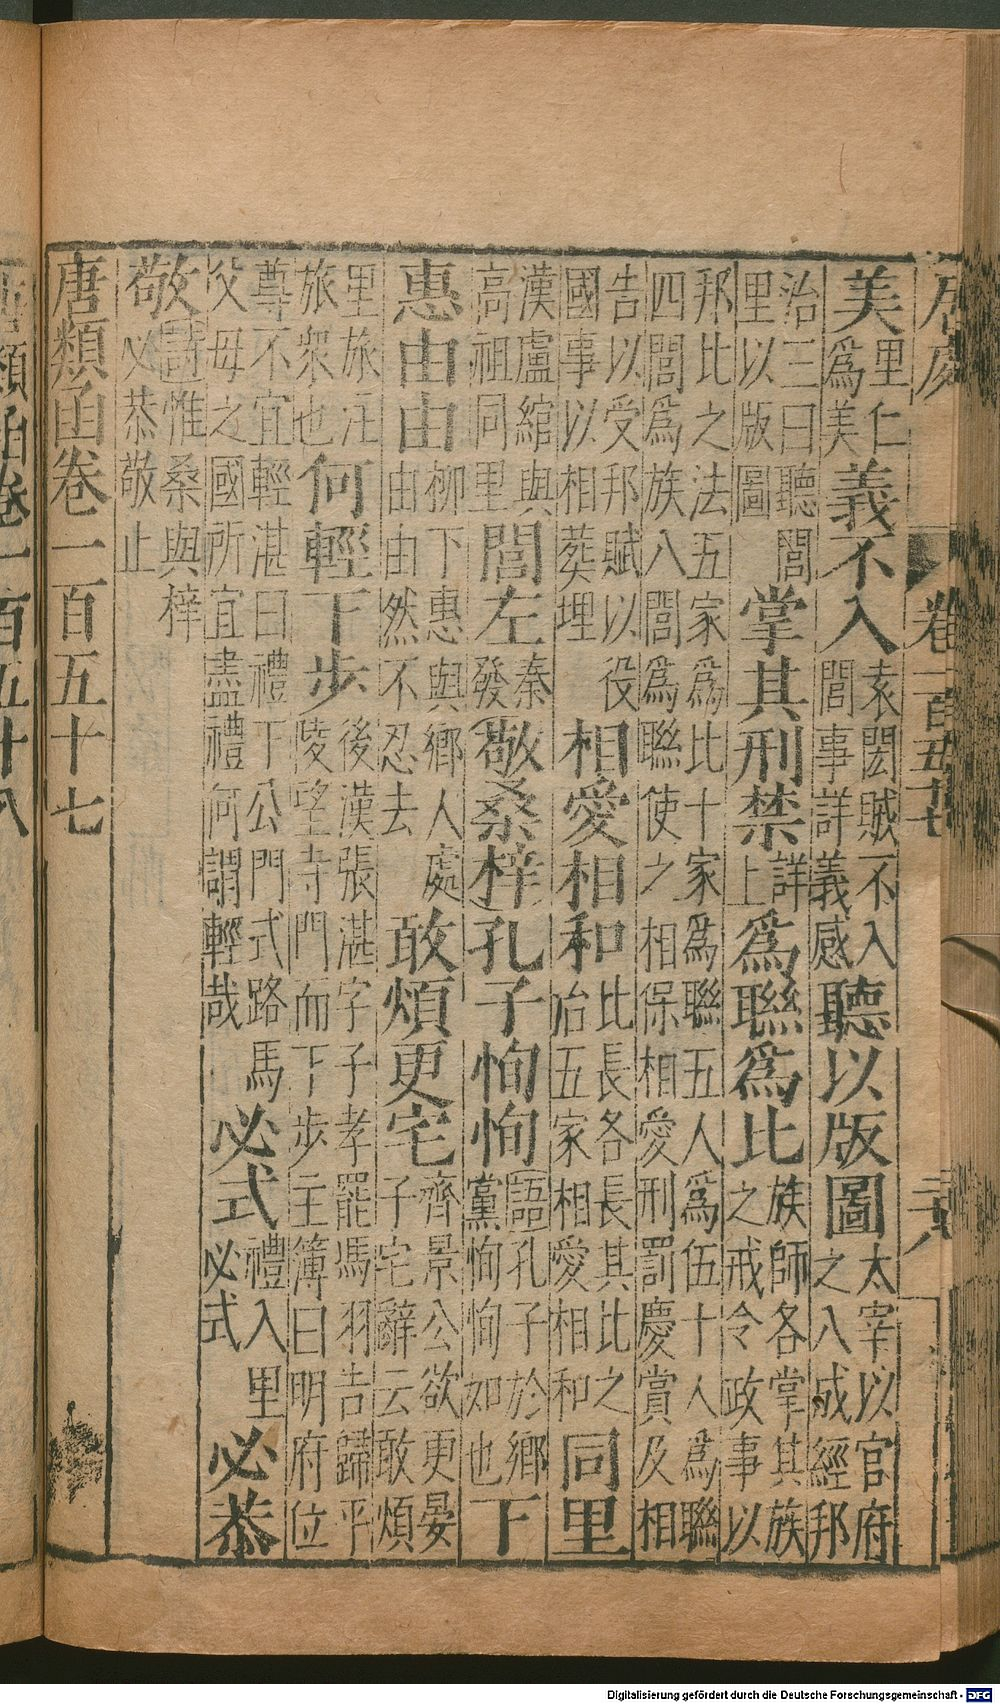 居處 卷一百五十七
美里仁爲美義不入袁閎賊不入閭事詳義感聽以版圖太宰以官府之八成經邦
治三曰聽閭里以版圖掌其刑禁詳上爲聯爲比族師各掌其族之戒令政事以
邦比之法五家爲比十家爲聯五人爲伍十人爲聯四閭爲族八閭爲聯使之相保相愛刑罰慶賞及相
告以受邦賦以役國事以相葬埋相愛相和比長各長其比之治五家相愛相和同里
漢盧綰與高祖同里閭左秦發敬桑梓孔子恂恂語孔子於鄉黨恂恂如也下
惠由由柳下惠與鄉人處由由然不忍去敢煩更宅齊景公欲更晏子宅辭云敢煩
里旅汪旅衆也何輕下步後漢張湛字子孝罷馮羽告歸平陵望寺門而下步主簿曰明府位
尊不宜輕湛曰禮下公門式路馬父母之國所宜盡禮何謂輕哉必式禮入里必式必恭
敬詩惟桑與梓必恭敬止
唐類函卷一百五十七
Digitalisierung gefördert durch die Deutsche Forschungsgemeinschaft - DFG